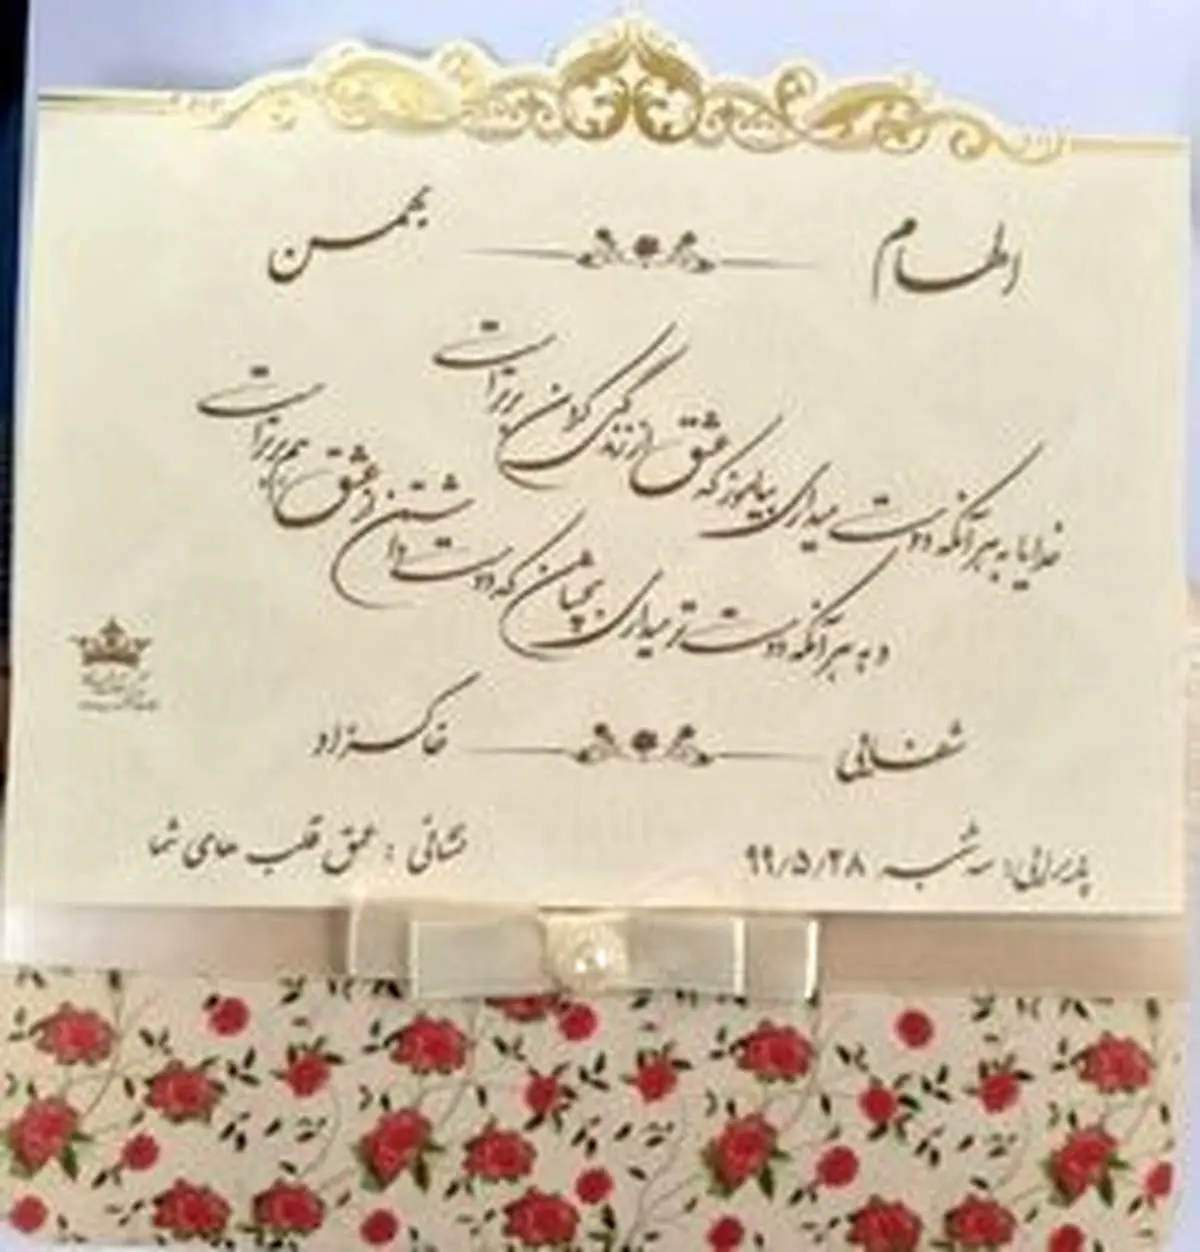 الهام بهمن
خدایا به هر آنکه دوست میداری بیاموز که عشق از زندگی کردن برتر است
و به هر آنکه دوست تر میداری بچشان که دوست داشتن از عشق هم برتر است
شفائی خاکسزاد
پذیرایی: سه شنبه ۹۹/۵/۲۸ نشانی: عمق قلب های شما